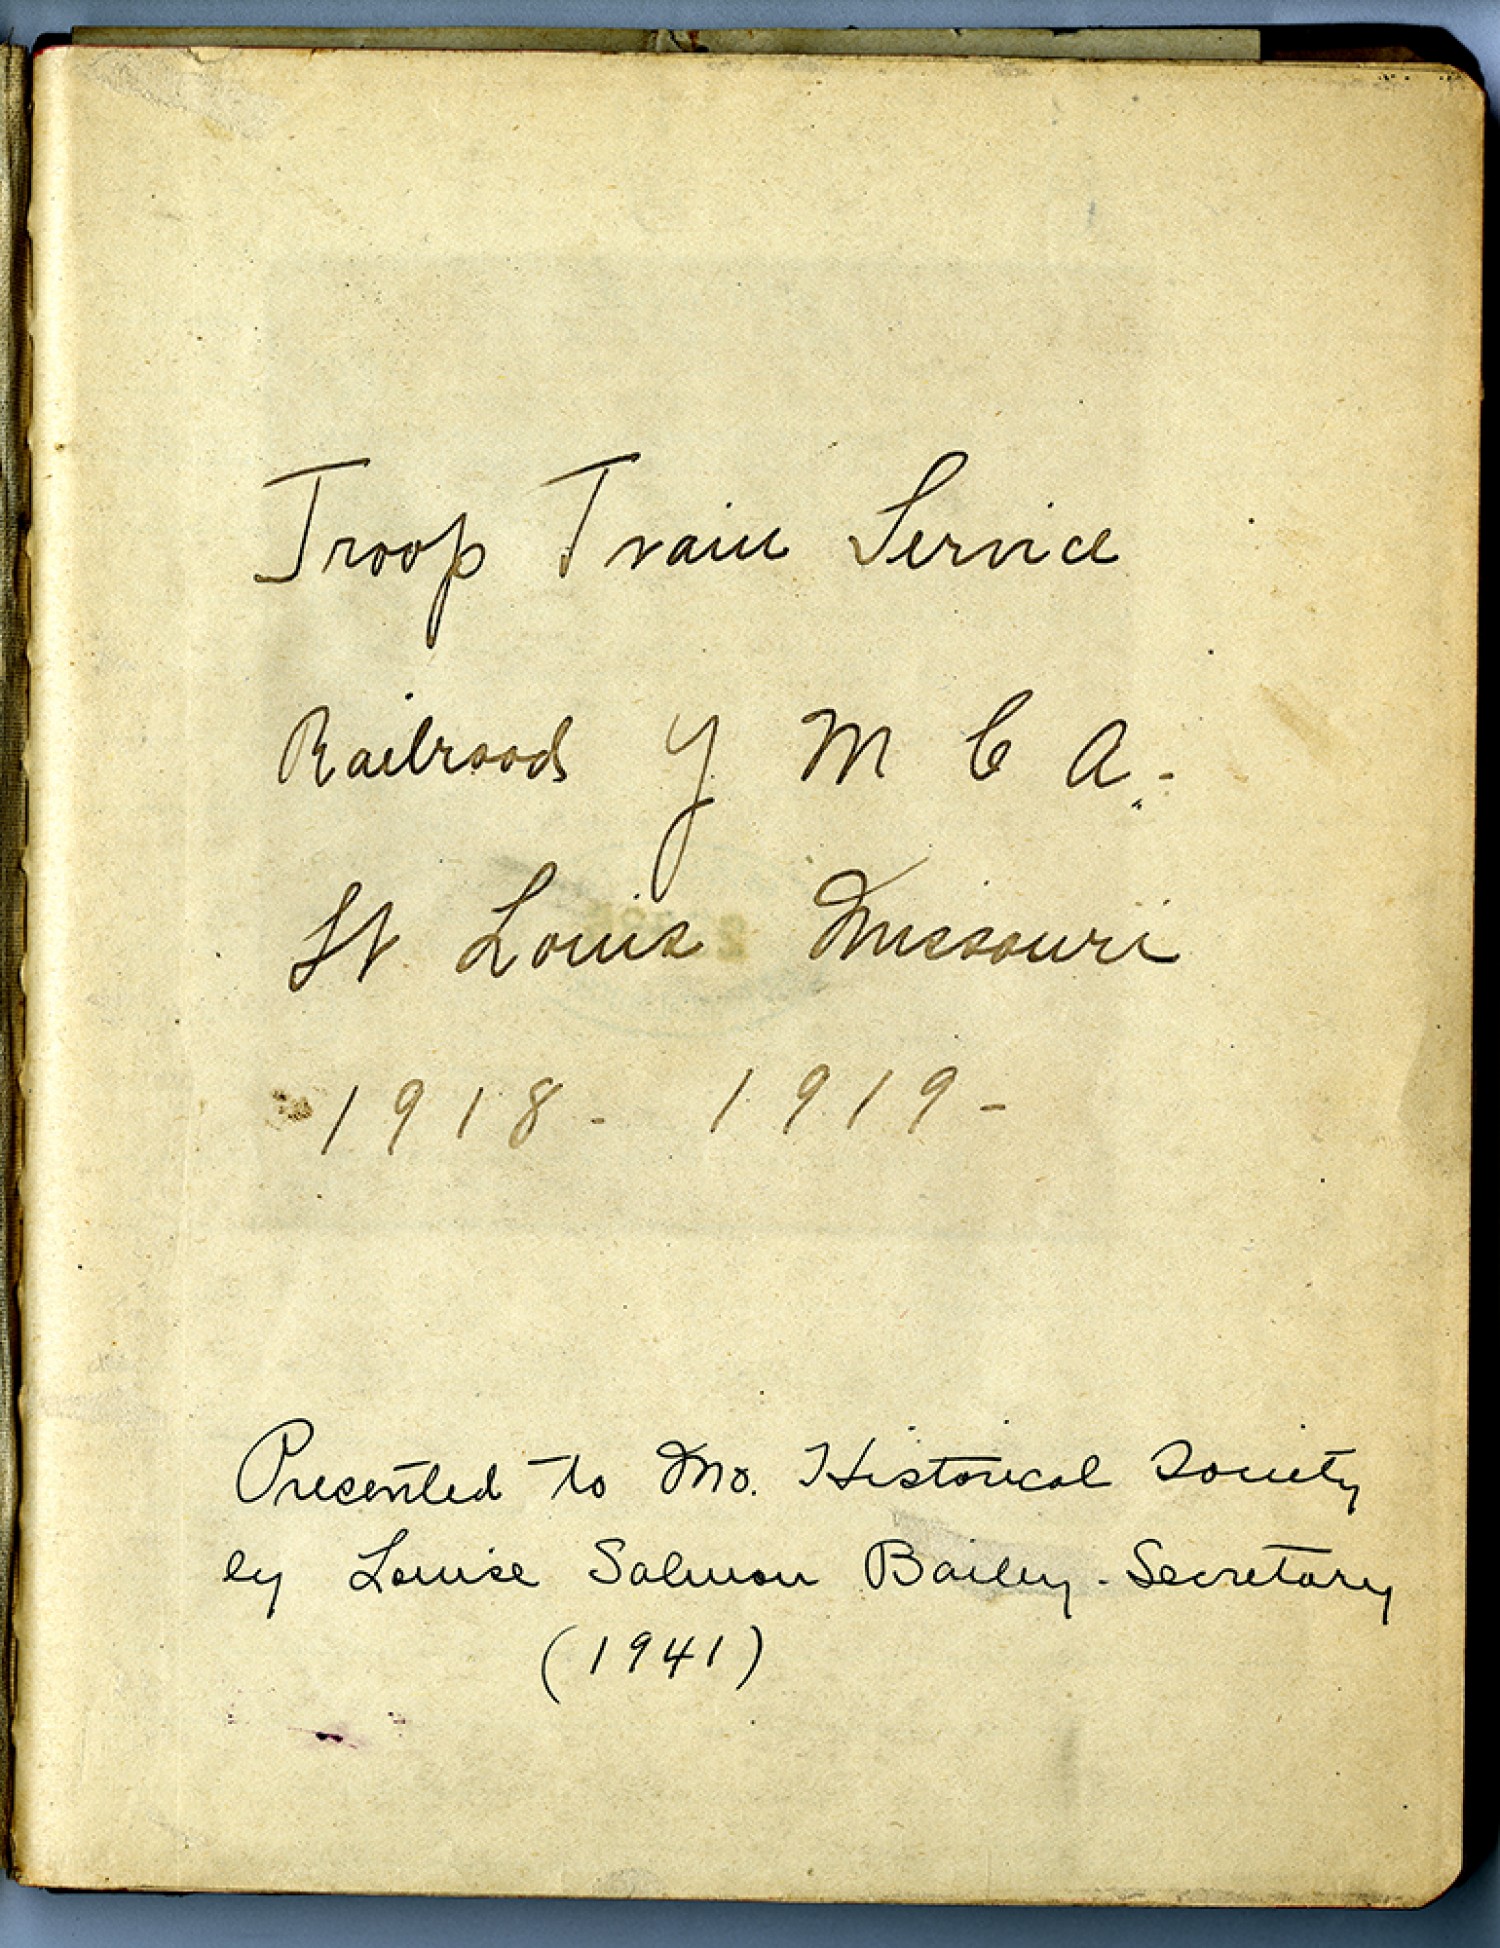 Troop Train Service
Railroad Y M C A -
St Louis Missouri
1918 - 1919 -
Presented to Mo. Historical Society
by Louise Salmon Bailey - Secretary
(1941)